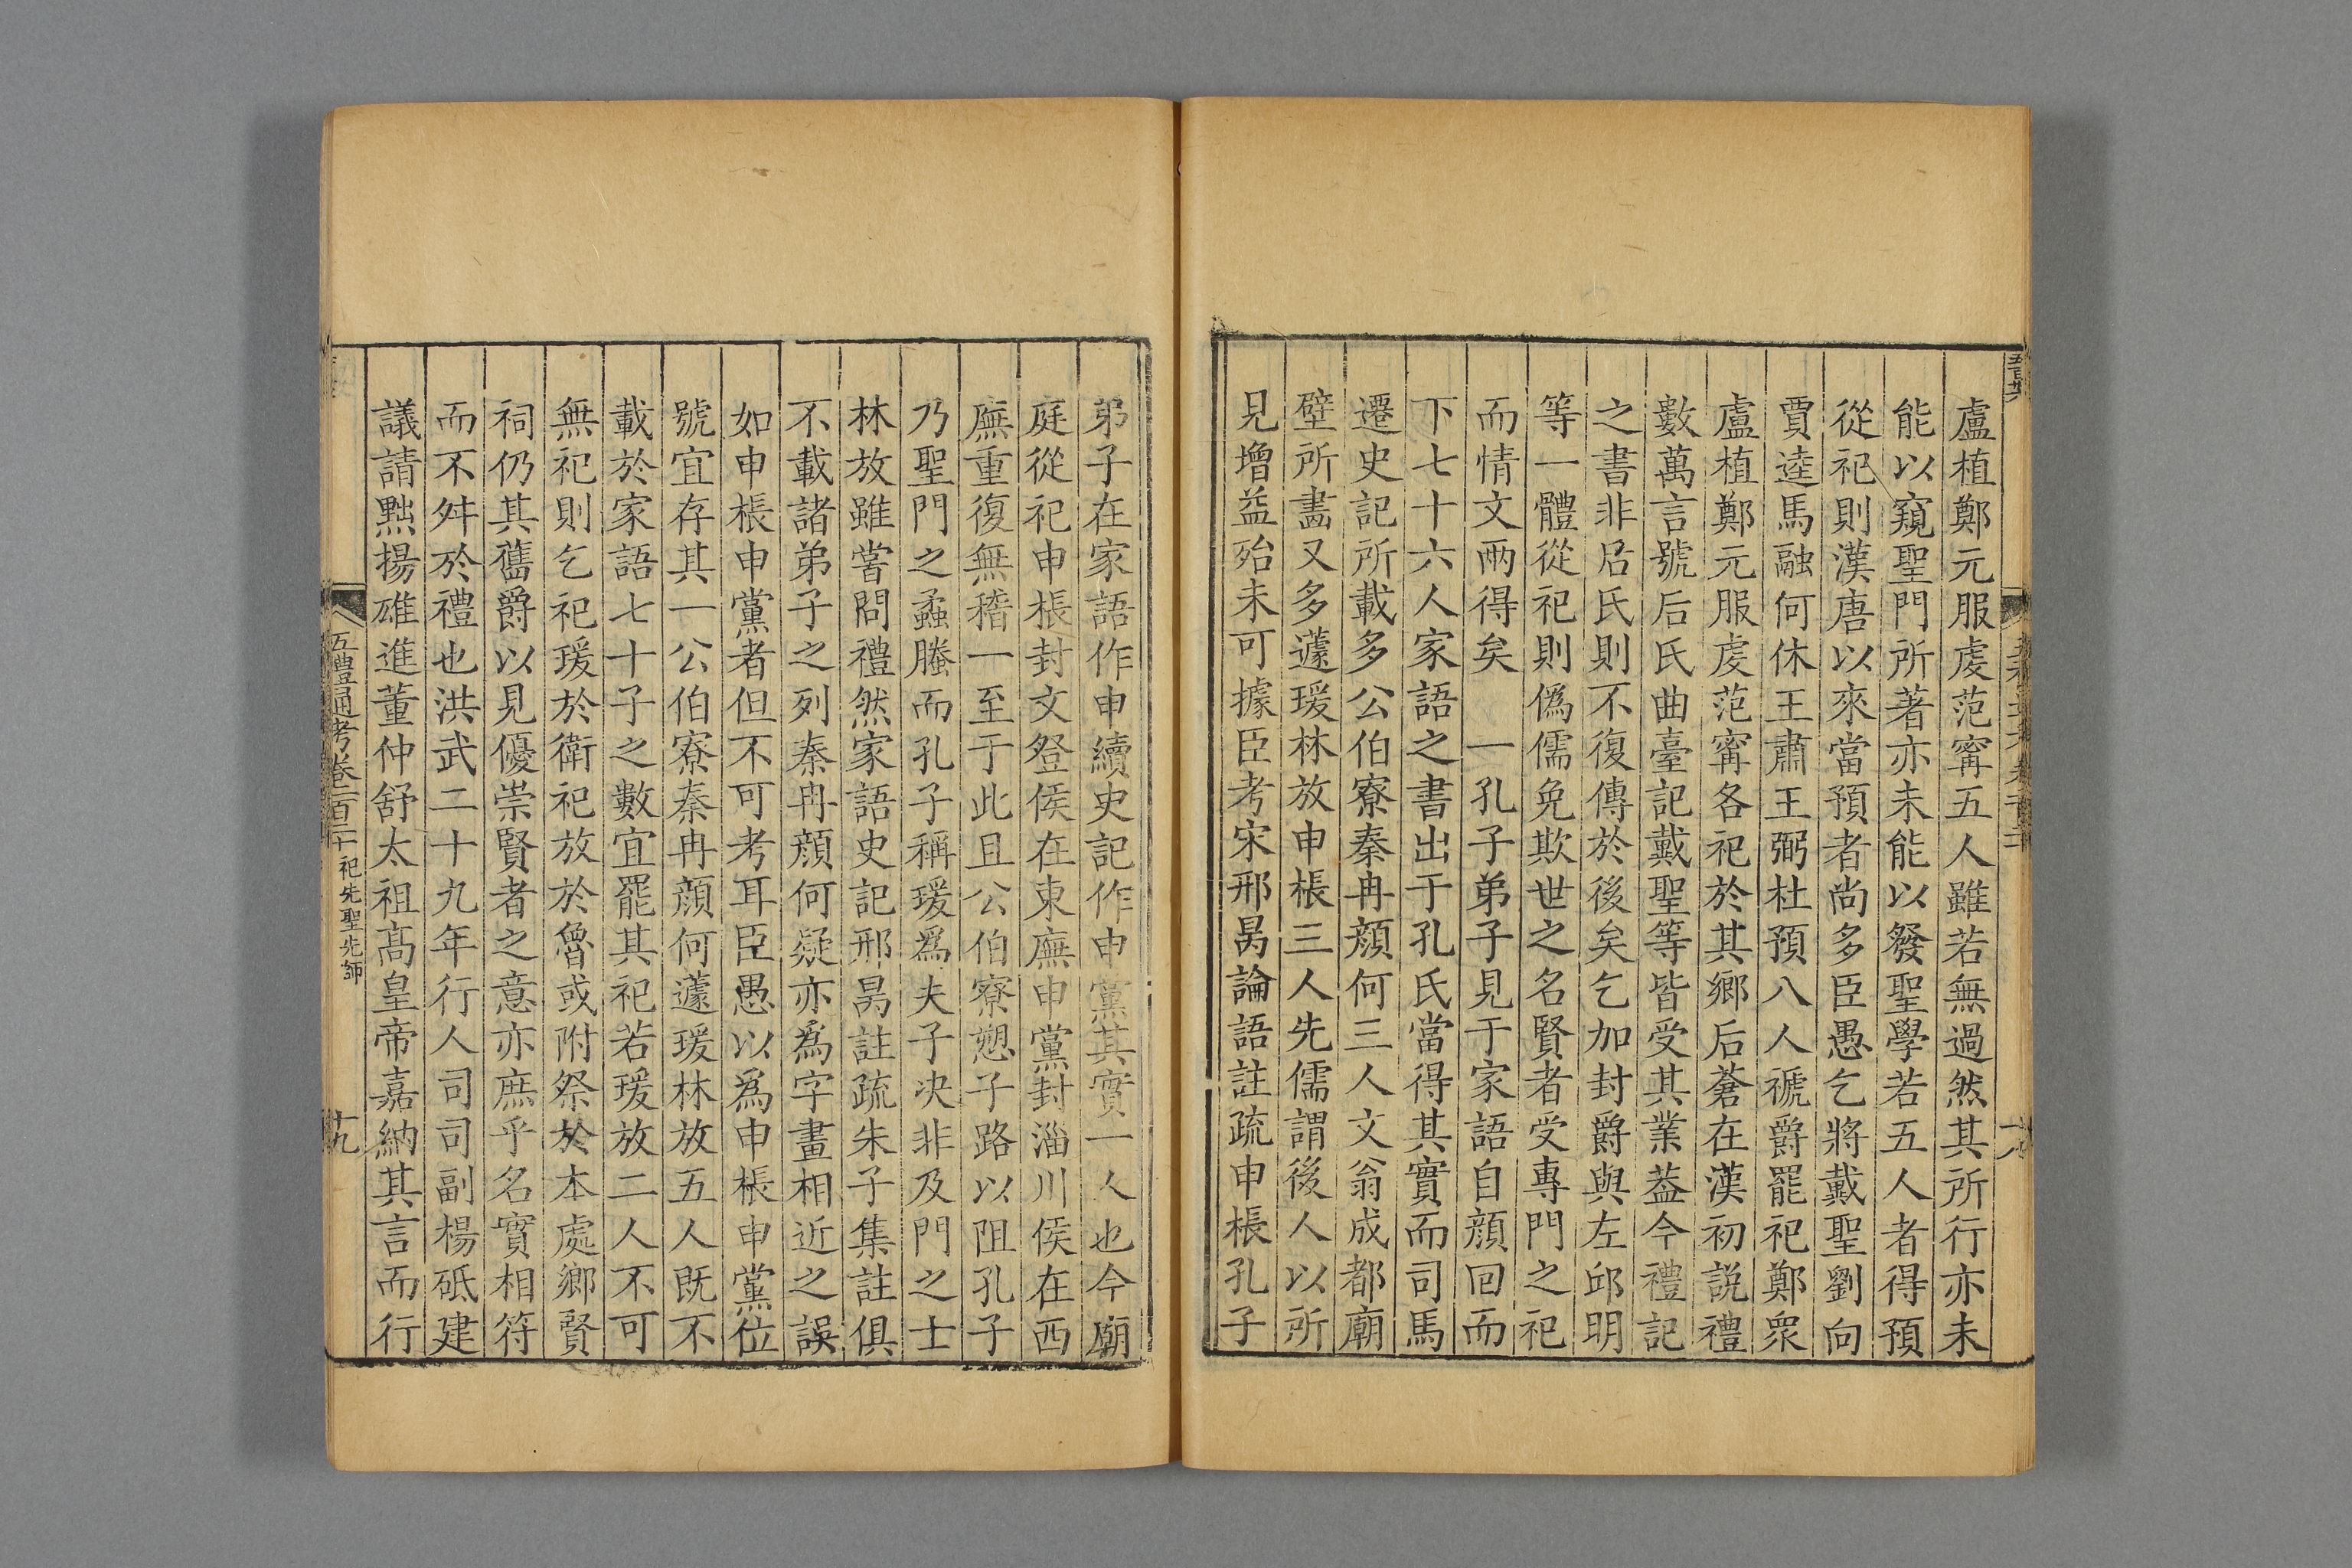 盧植鄭元服虔范甯五人雖若無過然其所行亦未
能以窺聖門所著亦未能以發聖學若五人者得預
從祀則漢唐以來當預者尚多臣愚乞將戴聖劉向
賈逵馬融何休王肅王弼杜預八人褫爵罷祀鄭衆
盧植鄭元服虔范甯各祀於其鄉后蒼在漢初説禮
數萬言號后氏曲臺記戴聖等皆受其業蓋今禮記
之書非后氏則不復傳於後矣乞加封爵與左邱明
等一體從祀則僞儒免欺世之名賢者受專門之祀
而情文兩得矣　一孔子弟子見于家語自顔回而
下七十六人家語之書出于孔氏當得其實而司馬
遷史記所載多公伯寮秦冉顔何三人文翁成都廟
壁所畵又多蘧瑗林放申棖三人先儒謂後人以所
見增益殆未可據臣考宋邢昺論語註疏申棖孔子
弟子在家語作申續史記作申黨其實一人也今廟
庭從祀申棖封文登侯在東廡申黨封淄川侯在西
廡重復無稽一至于此且公伯寮愬子路以阻孔子
乃聖門之蟊螣而孔子稱瑗爲夫子决非及門之士
林放雖嘗問禮然家語史記邢昺註疏朱子集註俱
不載諸弟子之列秦冉顔何疑亦爲字畫相近之誤
如申棖申黨者但不可考耳臣愚以爲申棖申黨位
號宜存其一公伯寮秦冉顔何蘧瑗林放五人既不
載於家語七十子之數宜罷其祀若瑗放二人不可
無祀則乞祀瑗於衛祀放於魯或附祭於本處鄉賢
祠仍其舊爵以見優崇賢者之意亦庶乎名實相符
而不舛於禮也洪武二十九年行人司司副楊砥建
議請黜揚雄進董仲舒太祖高皇帝嘉納其言而行
五禮通考卷一百二十 祀先聖先師
十九